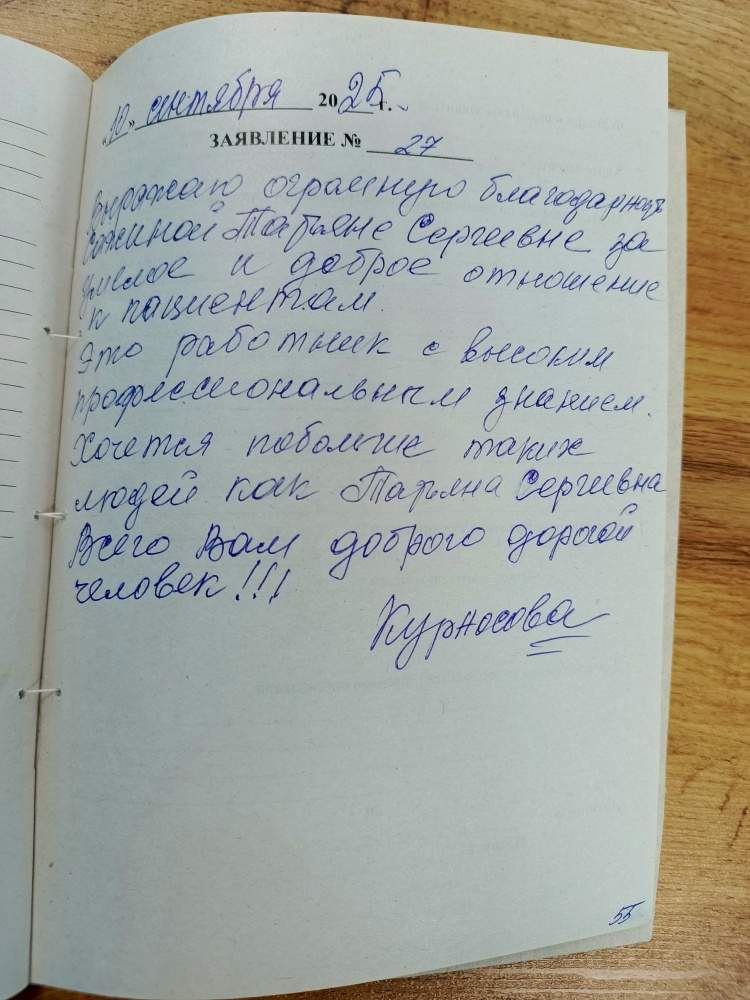 «10» сентября 2025 г.
ЗАЯВЛЕНИЕ № 27
Выражаю огромную благодарность
Сажиной Татьяне Сергеевне за
умелое и доброе отношение
к пациентам.
Это работник с высоким
профессиональным знанием.
Хочется побольше таких
людей как Татьяна Сергеевна
Всего Вам доброго дорогой
человек!!!
Курносова
55